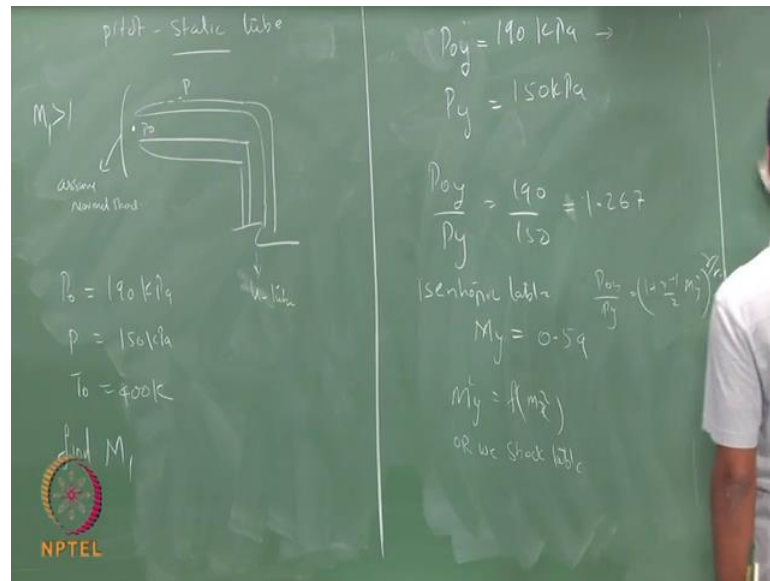 pitot - static tube
M₁>1
P
P₀
assume
normal shock
u-tube
P₀ = 190 kPa
P = 150 kPa
T₀ = 400K
find M₁
P₀y = 190 kPa →
Py = 150 kPa
P₀y/Py = 190/150 = 1.267
Isentropic table P₀y/Py = (1+ γ-1/2 My²)
My = 0.59
My² = f(Mx²)
OR use shock table
NPTEL